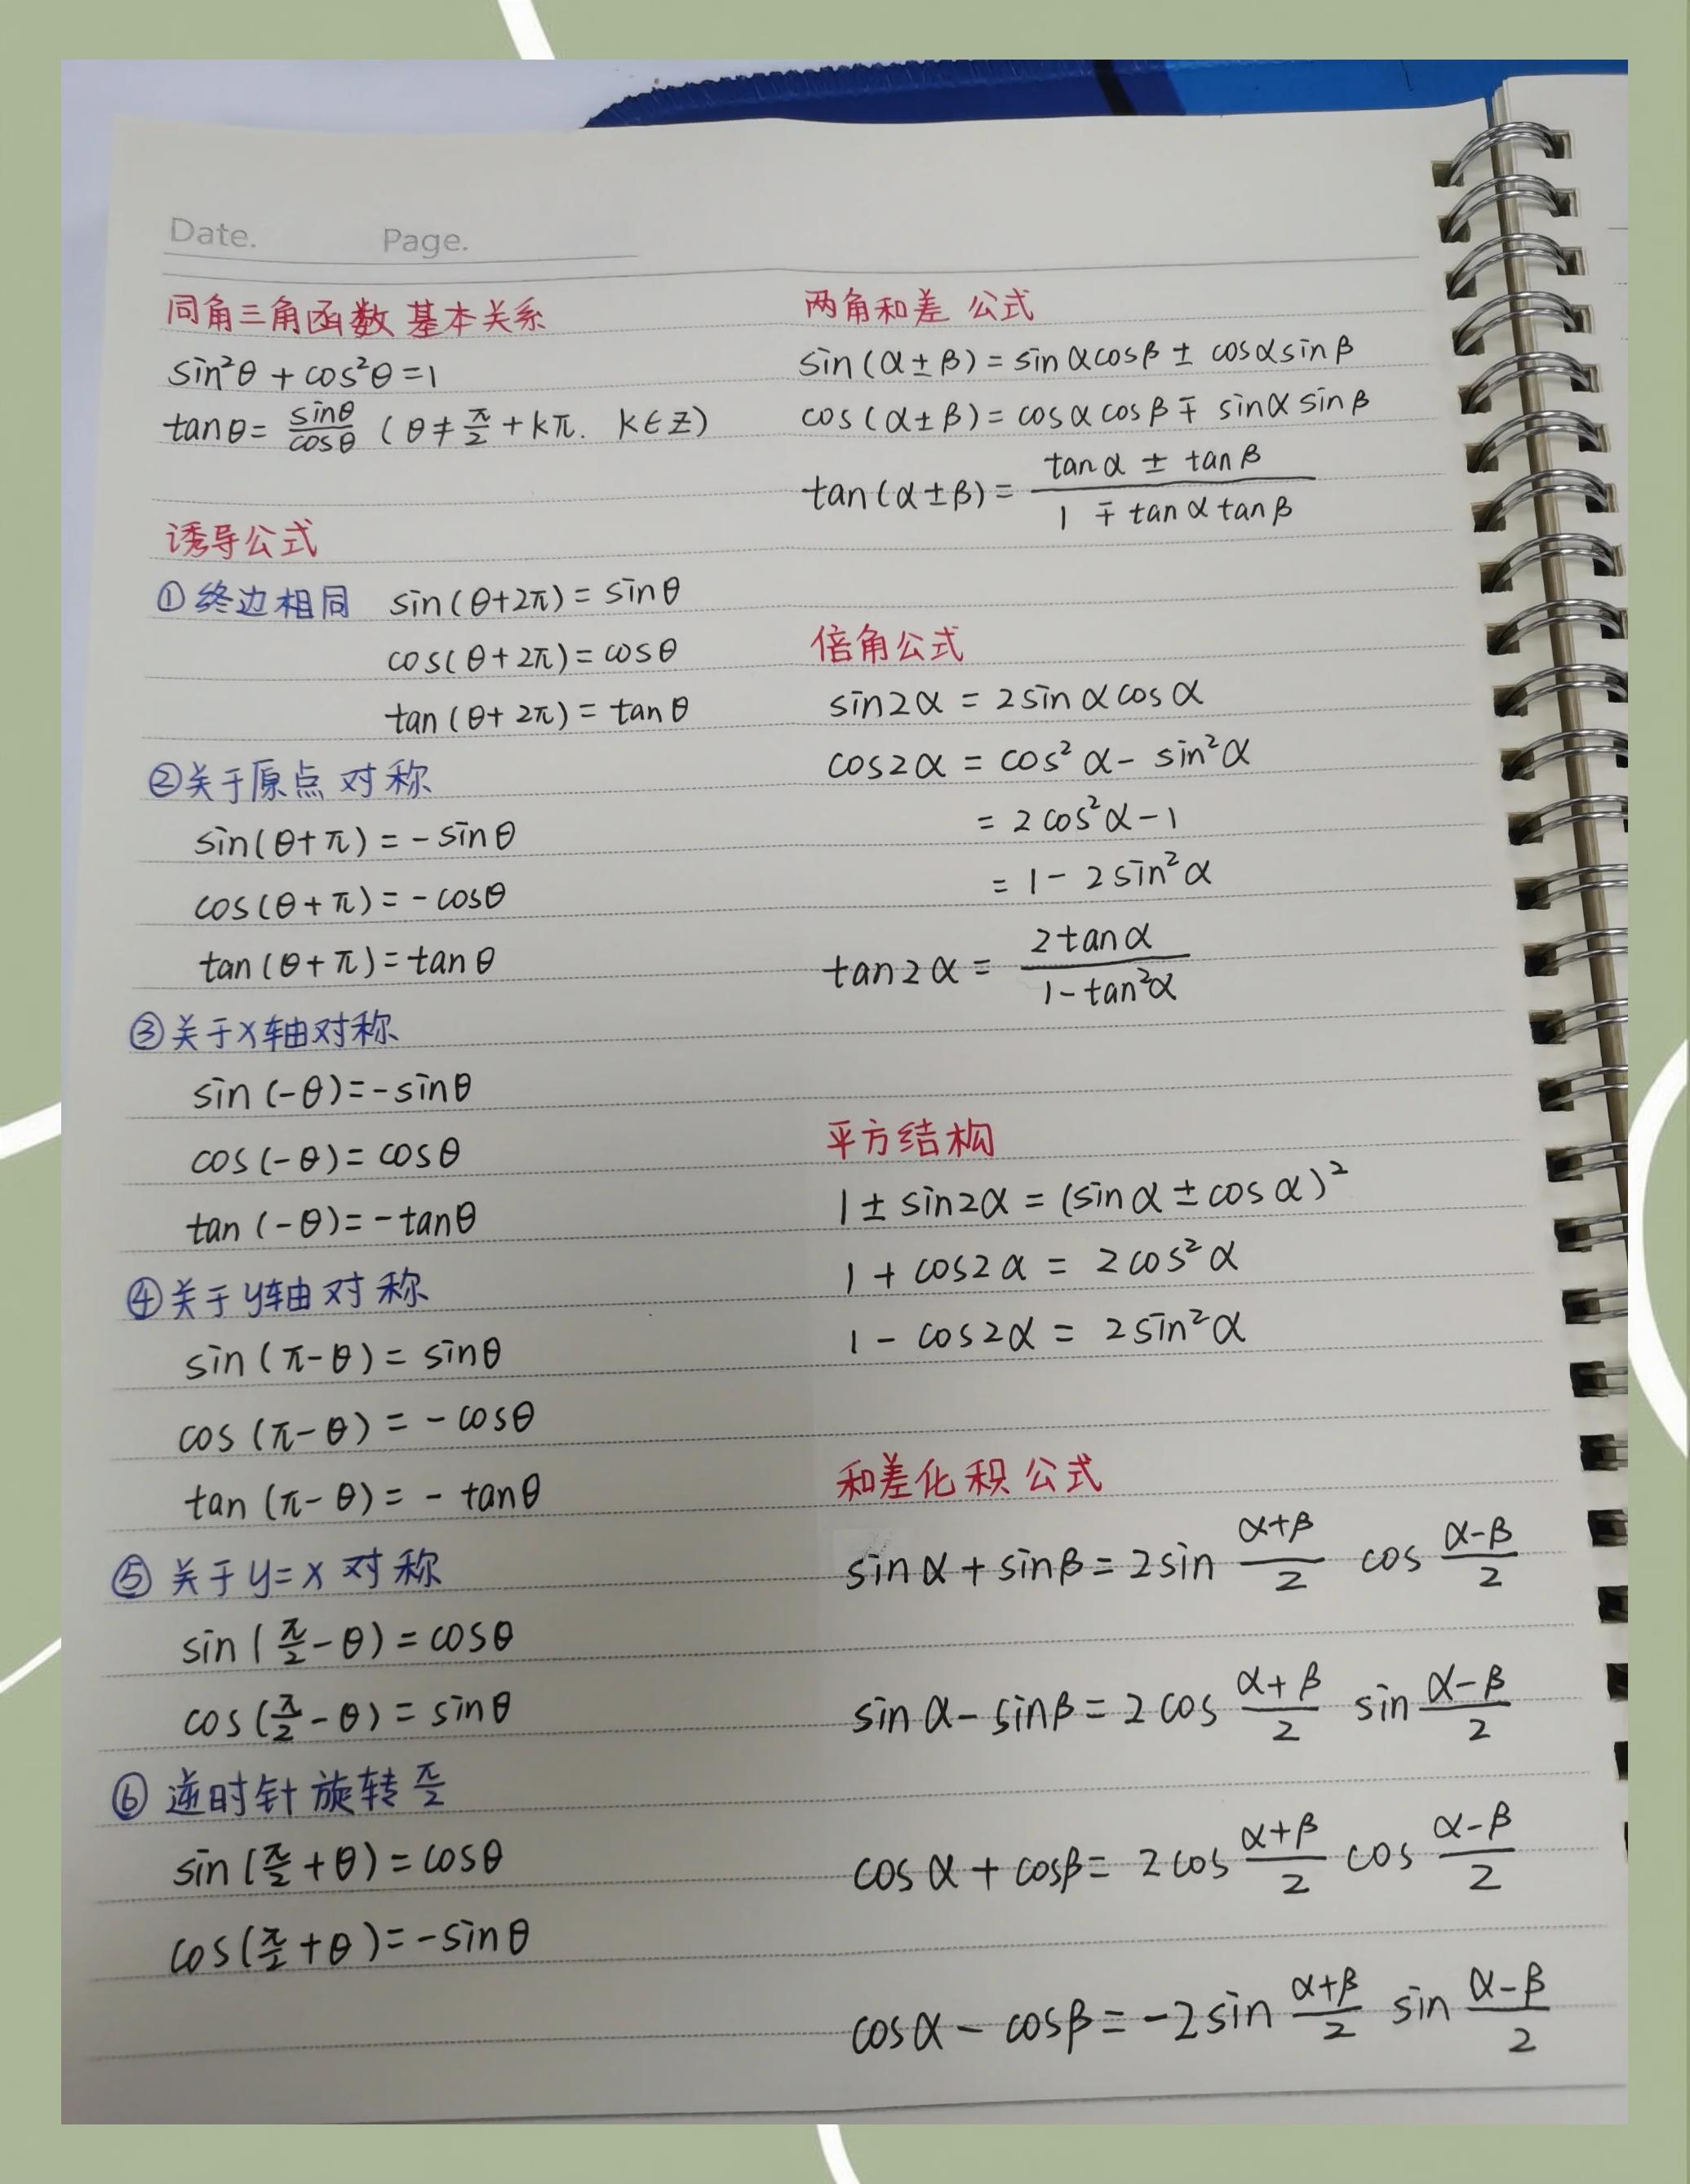 Date. Page.
同角三角函数基本关系
sin²θ + cos²θ = 1
tanθ = sinθ/cosθ (θ ≠ π/2 + kπ. k∈Z)
诱导公式
①终边相同 sin(θ+2π) = sinθ
cos(θ+2π) = cosθ
tan(θ+2π) = tanθ
②关于原点对称
sin(θ+π) = -sinθ
cos(θ+π) = -cosθ
tan(θ+π) = tanθ
③关于x轴对称
sin(-θ) = -sinθ
cos(-θ) = cosθ
tan(-θ) = -tanθ
④关于y轴对称
sin(π-θ) = sinθ
cos(π-θ) = -cosθ
tan(π-θ) = -tanθ
⑤关于y=x对称
sin(π/2-θ) = cosθ
cos(π/2-θ) = sinθ
⑥逆时针旋转π/2
sin(π/2+θ) = cosθ
cos(π/2+θ) = -sinθ
两角和差公式
sin(α±β) = sinαcosβ ± cosαsinβ
cos(α±β) = cosαcosβ ∓ sinαsinβ
tan(α±β) = (tanα ± tanβ)/(1 ∓ tanαtanβ)
倍角公式
sin2α = 2sinαcosα
cos2α = cos²α - sin²α
= 2cos²α - 1
= 1 - 2sin²α
tan2α = 2tanα/(1-tan²α)
平方结构
1 ± sin2α = (sinα ± cosα)²
1 + cos2α = 2cos²α
1 - cos2α = 2sin²α
和差化积公式
sinα + sinβ = 2sin (α+β)/2 cos (α-β)/2
sinα - sinβ = 2cos (α+β)/2 sin (α-β)/2
cosα + cosβ = 2cos (α+β)/2 cos (α-β)/2
cosα - cosβ = -2sin (α+β)/2 sin (α-β)/2